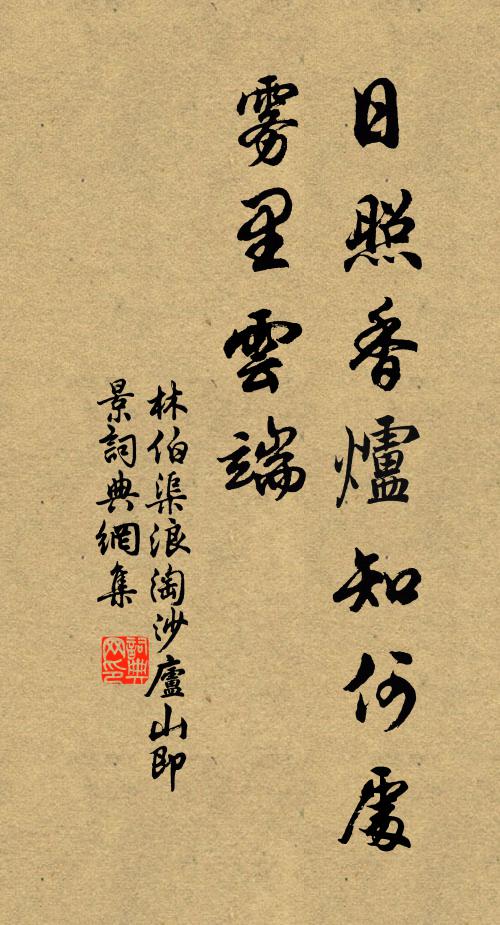 日照香爐知何處
雾里雲端
林伯渠浪淘沙廬山即
景詞典網集
詞典网印